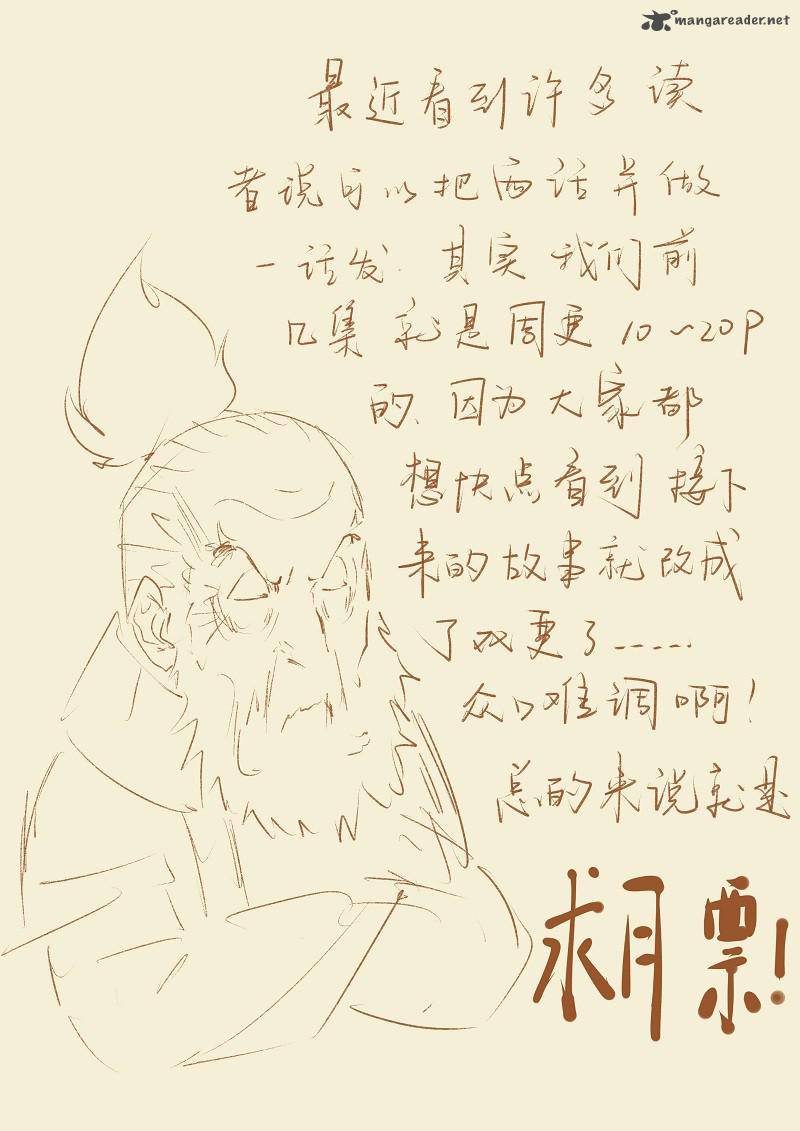 mangareader.net
最近看到许多读
者说可以把两话并做
一话发.其实我们前
几集就是周更10~20P
的、因为大家都
想快点看到接下
来的故事就改成
了双更了......
众口难调啊!
总的来说就是
求月票!